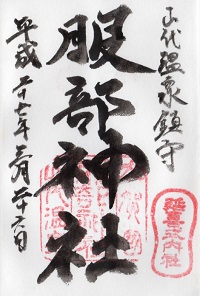 山代温泉鎮守
延喜式内社
服部神社
平成二十七年三月二十六日